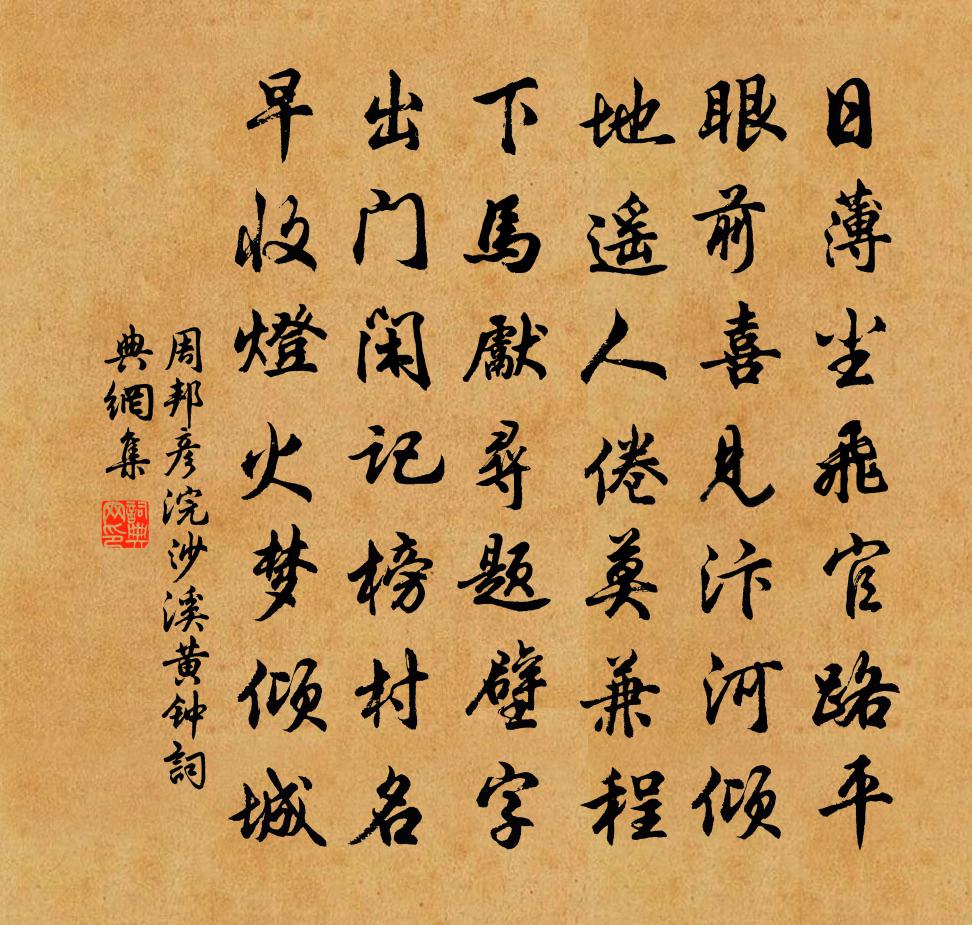 日薄尘飞官路平
眼前喜见汴河倾
地遥人倦莫兼程
下馬獻尋题壁字
出门闲记榜村名
早收燈火梦倾城
周邦彦浣沙溪黄钟詞
典網集
詞典网印